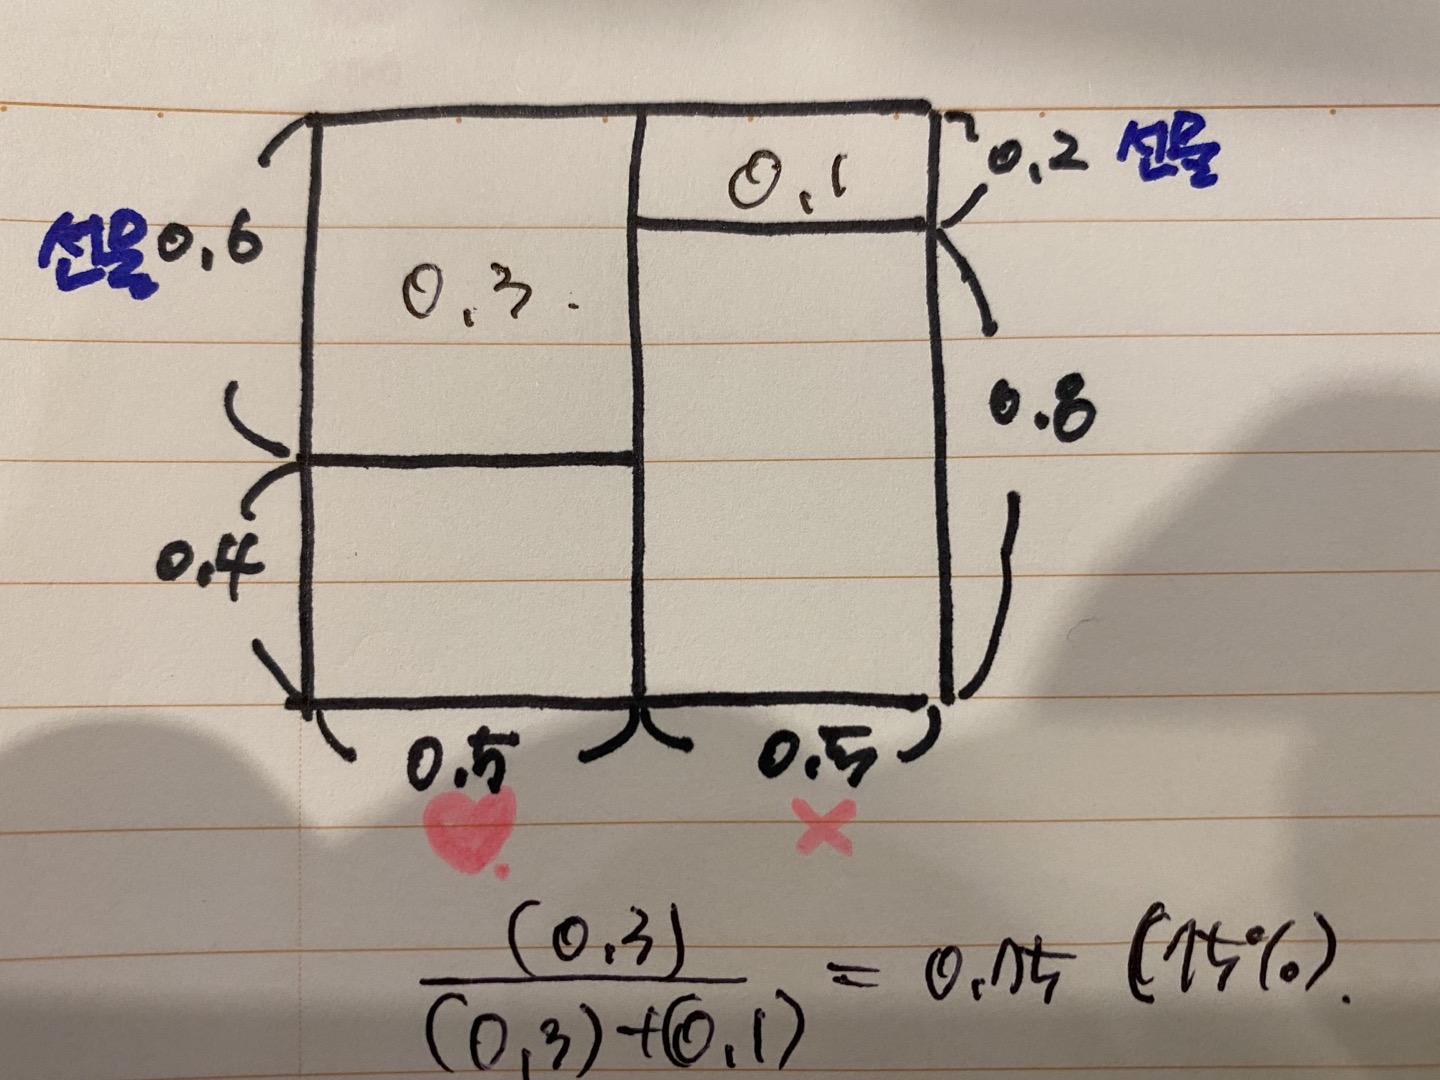 0.2 선물
0.1
선물 0.6
0.3.
0.8
0.4
0.5 0.5
♥ ×
(0.3)
(0.3)+(0.1)
= 0.75 (75%).